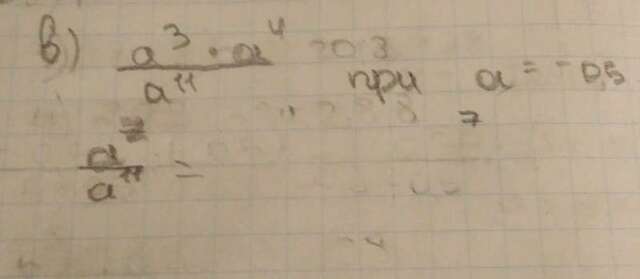 в) a³ · a⁴ / a¹¹ при a = -0,5
a⁷ / a¹¹ =